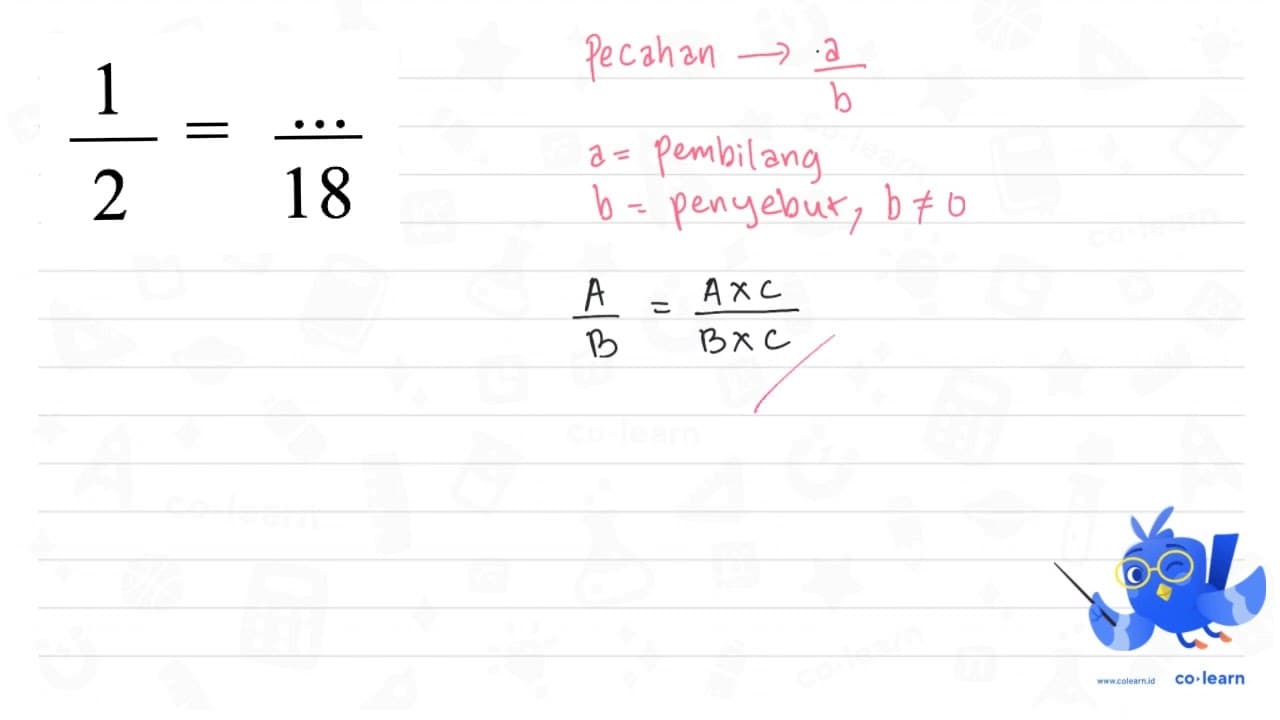 1/2 = .../18
Pecahan → a/b
a = pembilang
b = penyebut, b ≠ 0
A/B = A x C/B x C
co-learn
www.colearn.id co•learn